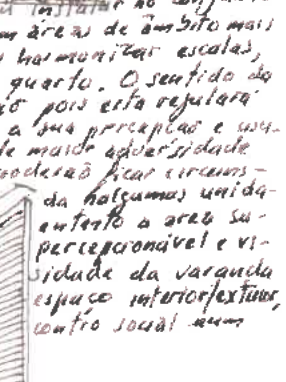 instalar no
m áreas de âmbito mais
harmonizar escalas,
quarto. O sentido da
pois esta regulará
a sua percepção e usu-
de maior adversidade
poderão ficar circuns-
da halgumas unida-
entento a area su-
percepcionável e vi-
sidade da varanda
espaço interior/exterior,
contro social num